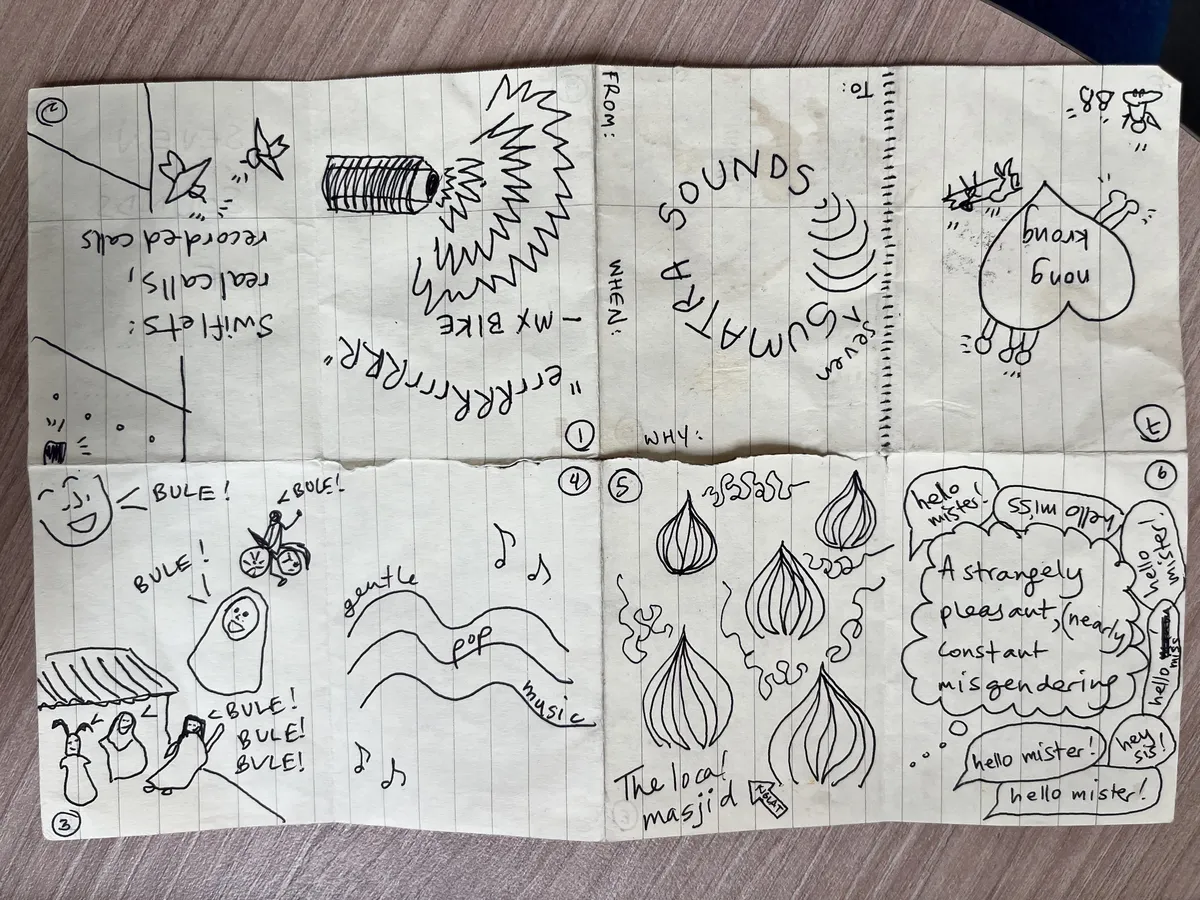 TO:
FROM:
WHEN:
WHY:
SEVEN
SUMATRA SOUNDS
1
"errRRRrrrRRR"
- MX BIKE
2
Swiflets:
real calls,
recorded calls
3
BULE!
BULE!
BULE!
BULE!
BULE!
BULE!
4
gentle
pop
music
5
The local
masjid
6
hello
mister!
hello miss
hello
mister!
hello
miss
A strangely
pleasant, (nearly)
constant
misgendering
hey
sis!
hello mister!
hello mister!
7
nong
krong